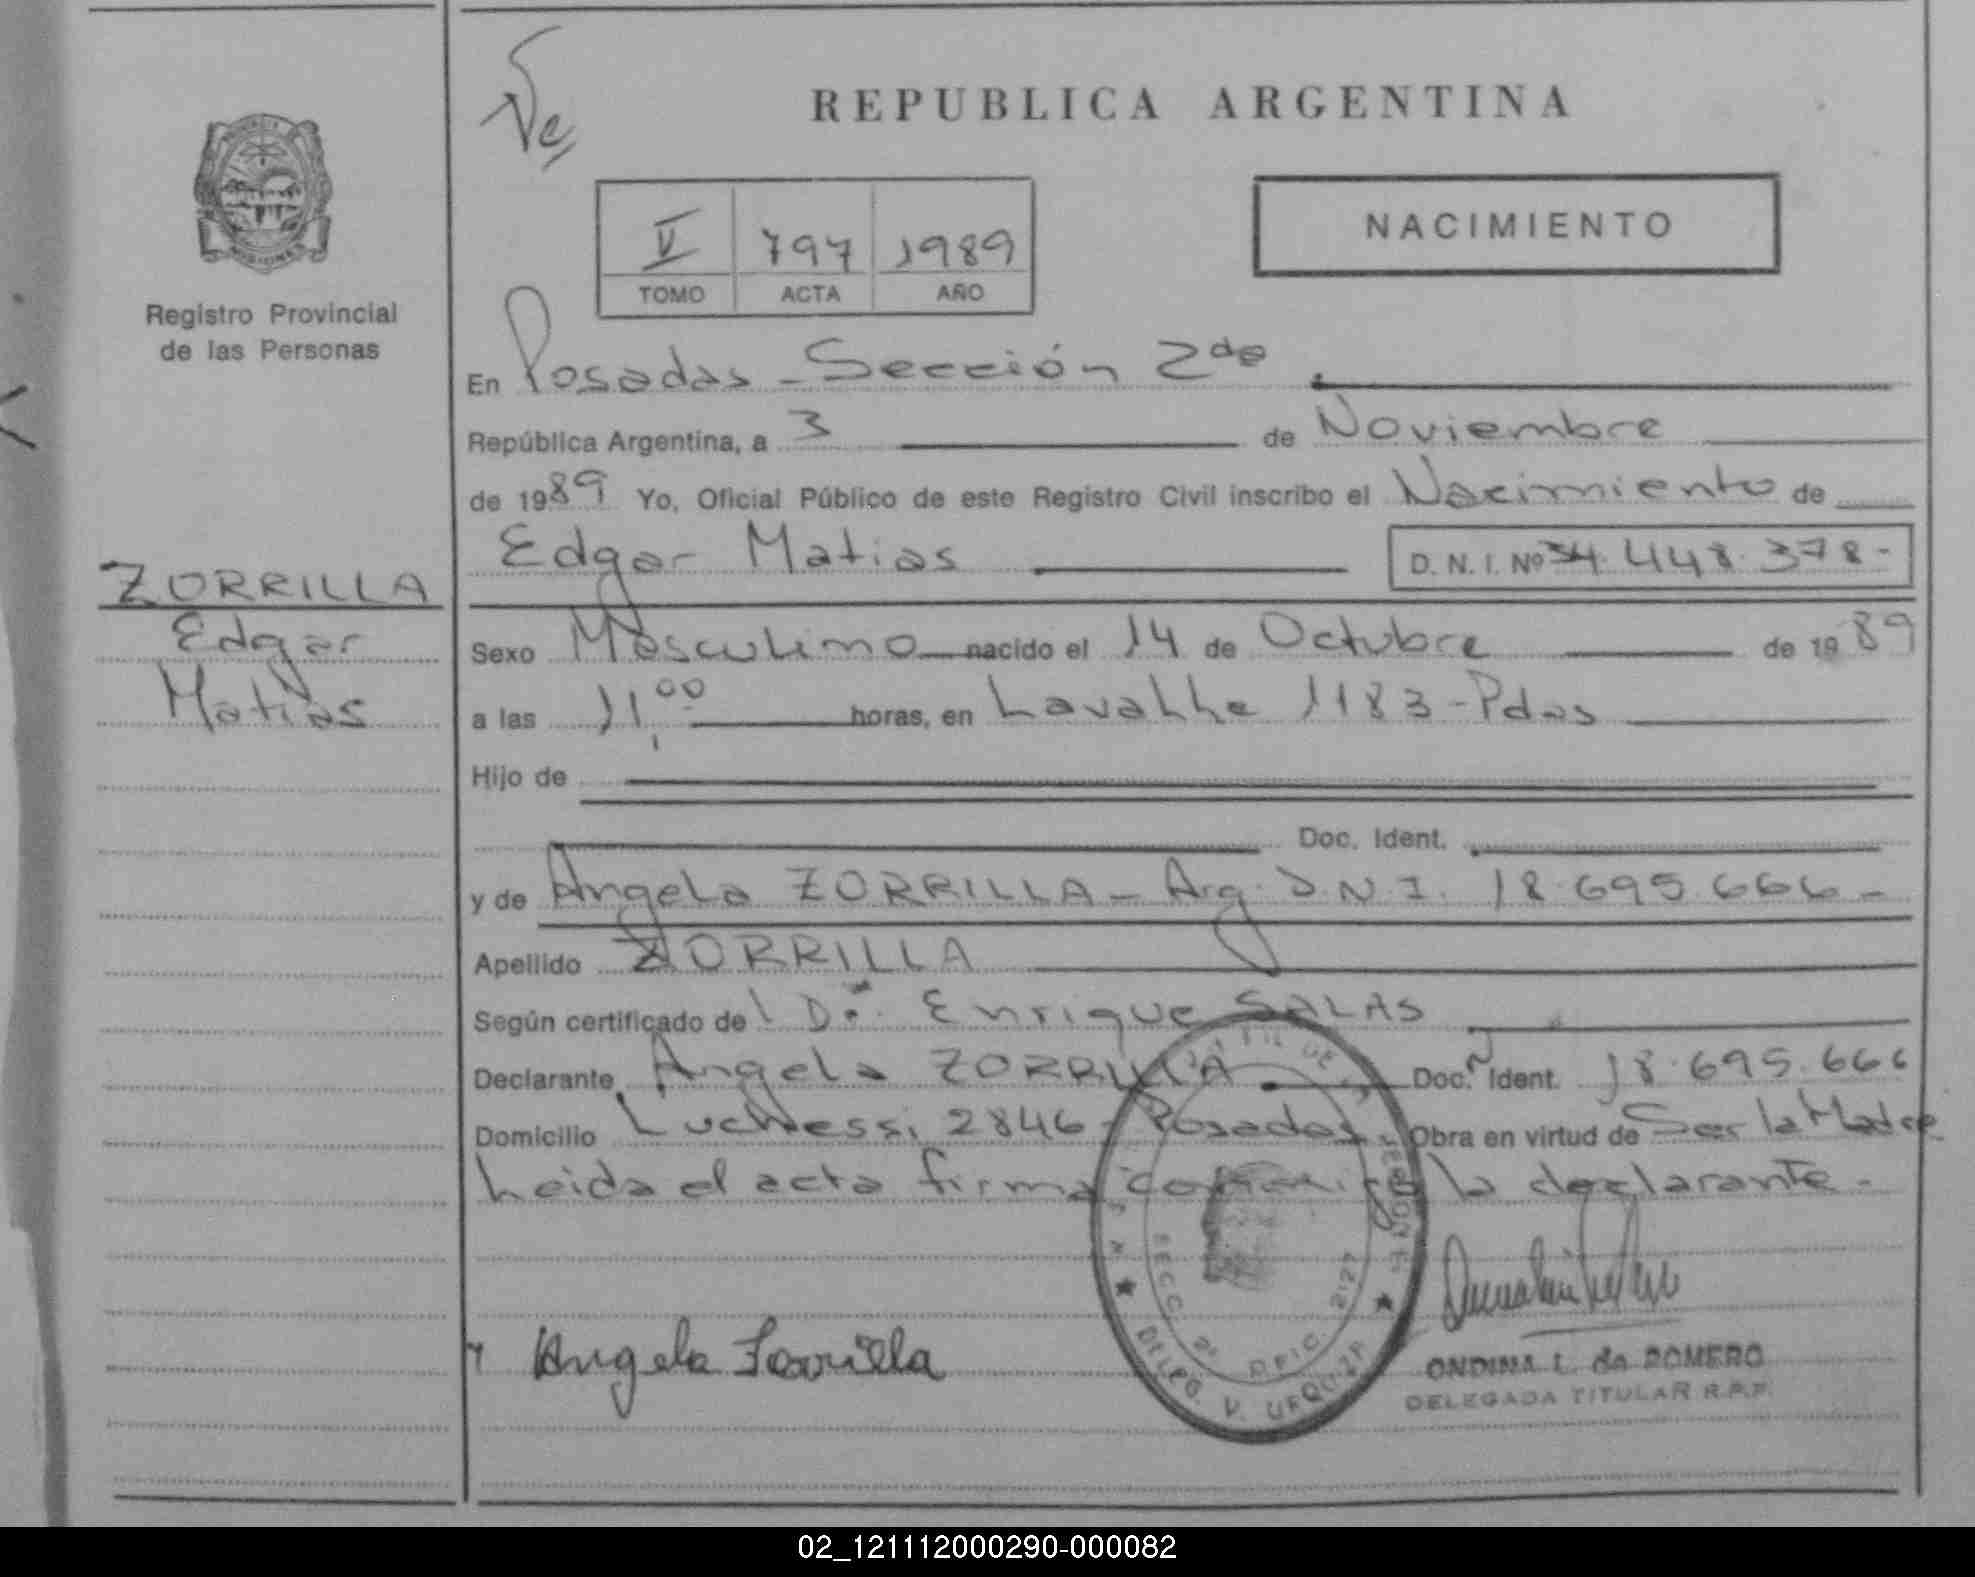 Ve
REPUBLICA ARGENTINA
V 797 1989
TOMO ACTA AÑO
NACIMIENTO
Registro Provincial
de las Personas
ZORRILLA
Edgar
Matias
En Posadas - Sección 2da
República Argentina, a 3 de Noviembre
de 1989 Yo, Oficial Público de este Registro Civil inscribo el Nacimiento de
Edgar Matias D. N. I. Nº 34.448.378-
Sexo Masculino nacido el 14 de Octubre de 1989
a las 11,00 horas, en Lavalle 1183 - Pdas
Hijo de
Doc. Ident.
y de Angela ZORRILLA - Arg. D.N.I. 18.695.666-
Apellido ZORRILLA
Según certificado del Dr. Enrique SALAS
Declarante Angela ZORRILLA Doc. Ident. 18.695.666
Domicilio Luchessi 2846 - Posadas. Obra en virtud de Ser la Madre
Leida el acta firma conmigo la declarante.
Angela Zorrilla
SECC. 2ª OFIC. 2127
DELEG. V. URQUIZA
ONDINA L. de ROMERO
DELEGADA TITULAR R.P.P.
02_121112000290-000082